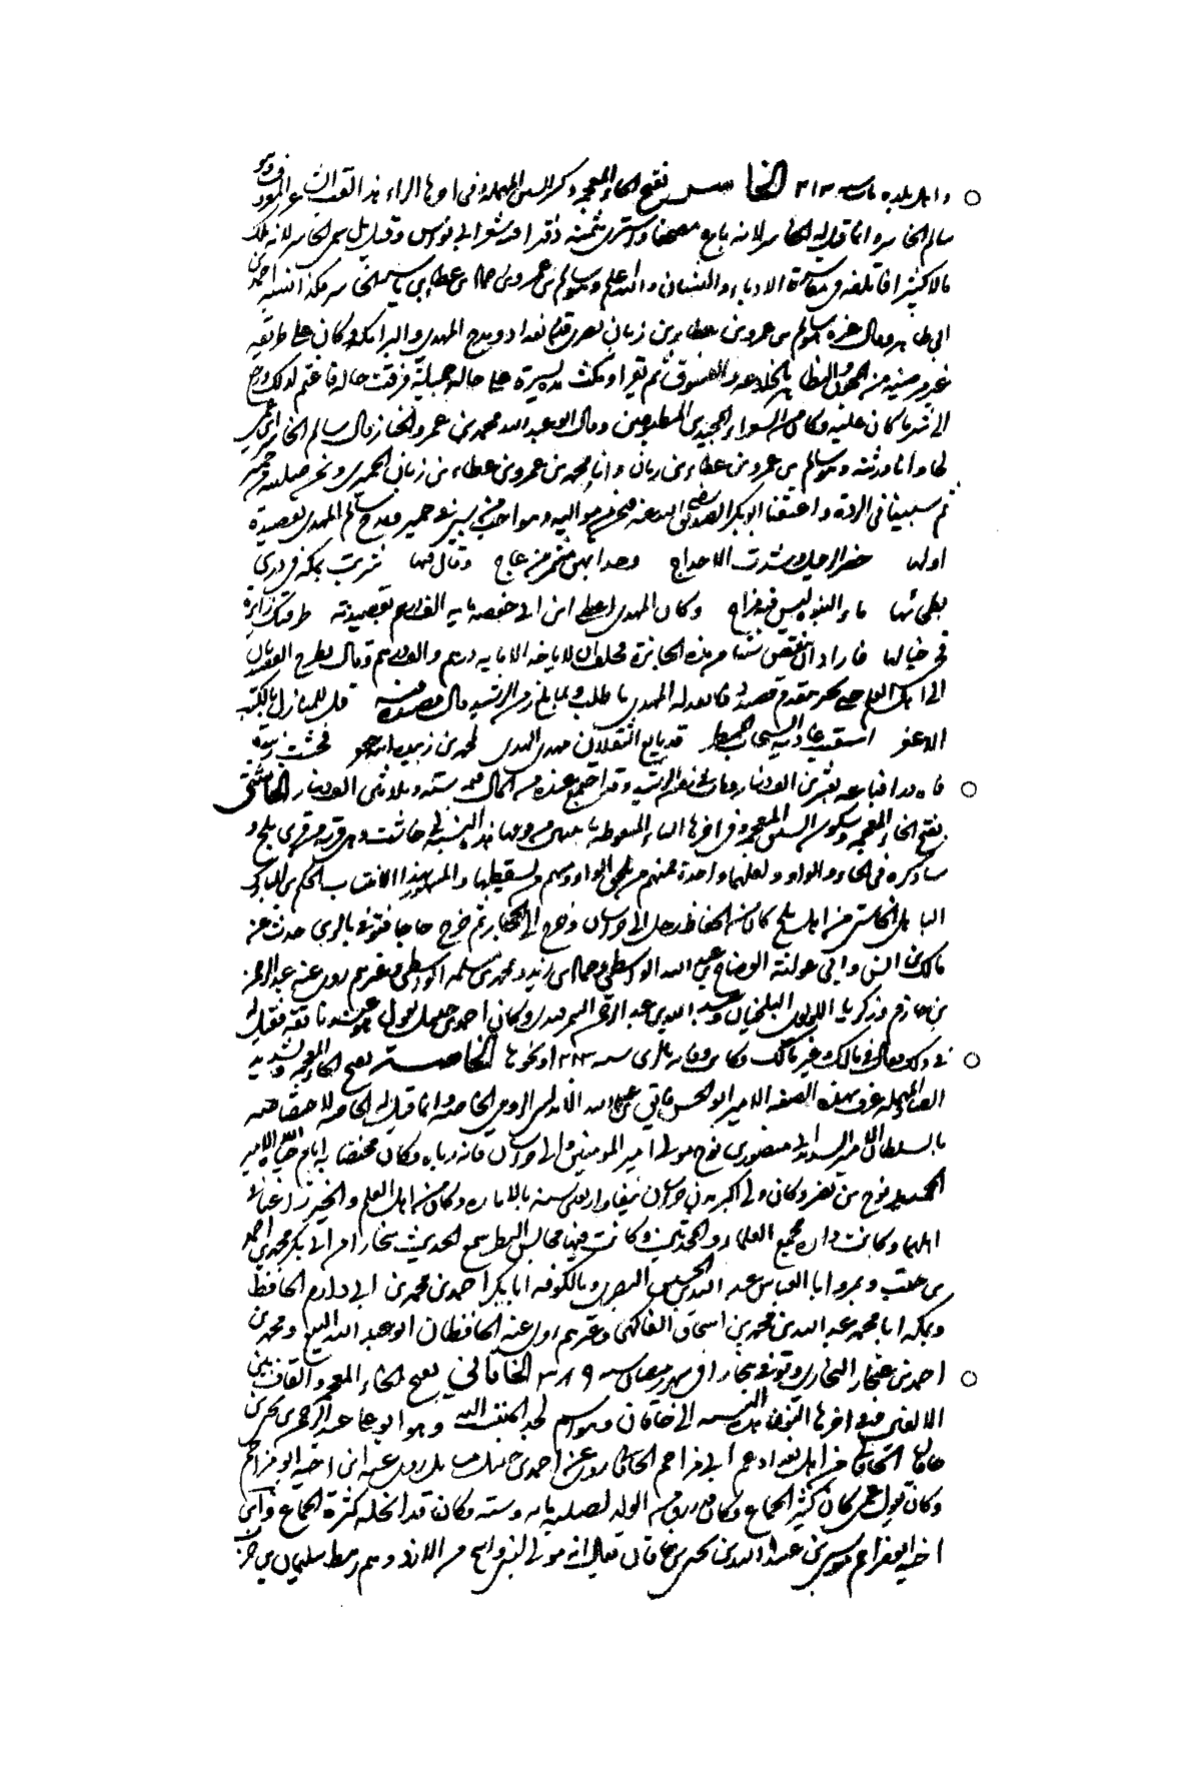 واهل بلده مات سنه ٣١٣ الخاسر بفتح الخاء المعجمه وكسر السين المهمله وفى اخرها الراء هذا اللقب والمعروف
سالم الخاسر وانما قيل له الخاسر لانه باع مصحفا واشترى بثمنه دفترا فيه شعر ابى نواس وقيل بل سمى الخاسر لانه ملك
مالا كثيرا فاتلفه فى معاشرة الادباء والفتيان والله اعلم وهو سالم بن عمرو بن حماد بن عطاء بن ياسر هكذا نسبه احمد بن
ابى طاهر وقال غيره هو سالم بن عمرو بن عطاء بن زبان بصرى قدم بغداد ومدح المهدى والبرامكه وكان على طريقه
غير مرضيه من المجون والتظاهر بالخلاعه والفسوق ثم تقرا ومكث مده يسيرة على حالة جميلة فرقت حاله فاغتم لذلك ورجع
الى شر ما كان عليه وكان من الشعراء المجيدين وقال ابو عبد الله محمد بن عمرو الجماز قال سالم الخاسر ابن عمى
لحا وانا ورثته وهو سالم بن عمرو بن عطاء بن زبان وانا محمد بن عمرو بن عطاء بن زبان الحميرى ونحن صليبه من حمير
ثم سبينا فى الردة واعتقنا ابو بكر الصديق رضى الله عنه فنحن مواليه ومدح سالم المهدى بقصيدة
اولها حضر الرحيل وشدت الاحداج وحدا بهن مشمر مزعاج وقال فيها شربت بمكة فى ذرى
بطحائها ماء النبوة ليس فيه مزاج وكان المهدى اعطى ابن ابى حفصه مايه الف درهم بقصيدته طرقتك زايرة
فحى خيالها فاراد ان ينقص سلما من هذه الجايزة فحلف ان لا ياخذ الا مايه درهم والف درهم وقال تطرح القصيدتان
الى اهل العلم حتى يخبر بتقدم قصيدتى فانفذ له المهدى ما طلب ولما بلغ زمن الرشيد قال قصيدته قل للمنازل بالكثيب
الاعفر اسقيت غادية السحاب الممطر قد بايع الثقلان مهدى الهدى لمحمد بن زبيدة ابنة جعفر فحشت زبيدة
فاه درا فباعه بعشرين الف دينار ومات فى زمن الرشيد وقد اجتمع عنده من المال قيمه سته وثلاثين الف دينار الخاشتى
بفتح الخاء المعجمه وسكون الشين المعجمه وفى اخرها التاء المنقوطه هذه النسبه الى خاشت وهى قريه من قرى بلخ و
ساذكره فى الخاء والواو ولعلهما واحدة فمنهم من يلحق الواو ومنهم من يسقطها والمشهور بهذا الانتساب الحكم بن المبارك
الباهلى الخاشتى من اهل بلخ كان من الحفاظ رحل الى خراسان وخرج الى الحجاز ثم خرج حاجا فتوفى بالرى حدث عن
مالك بن انس وابى عوانة الوضاح بن عبد الله الواسطى وحماد بن زيد ومحمد بن سلمه الواسطى وغيرهم روى عنه عبد الرحمن
بن حازم وزكريا اللولوى البلخيان وعبد الله بن عبد الرحمن السمرقندى وكان احمد بن حنبل يقول هو عندنا ثقة فقيل له
فى ذلك فقال فى مالك وغير مالك وكانت وفاته بالرى سنه ٢١٣ او نحوها الخاصه بفتح الخاء المعجمه وتشديد
الصاد المهمله عرف بهذه الصفه الامير ابو الحسن فايق بن عبد الله الاندلسى الرومى الخاصه وانما قيل له الخاصه لاختصاصه
بالسلطان الامير السديد ابى منصور بن نوح مولى امير المومنين والى خراسان فانه رباه وكان مختصا به ايام حياة الامير
الحميد نوح بن نصر وكان ولى اكبر مدن خراسان نيفا واربعين سنه بالاماره وكان من اهل العلم والخير راغبا فى
اهلها وكانت داره مجمع العلماء والمحدثين وكانت فيها مجالس النظر سمع الحديث ببخارا من ابى بكر محمد بن احمد
بن خنب وبمرو ابا العباس عبد الله بن الحسين البصرى وبالكوفه ابا بكر احمد بن محمد بن ابى دارم الحافظ
وبمكه ابا محمد عبد الله بن محمد بن اسحاق الفاكهى وغيرهم روى عنه الحافظان ابو عبد الله البيع ومحمد بن
احمد بن غنجار البخارى وتوفى ببخارا فى شهر رمضان سنه ٣٨٩ الخاقانى بفتح الخاء المعجمه والقاف بين
الالفين وفى اخرها النون هذه النسبه الى خاقان وهو اسم لجد المنتسب اليه وهو ابو على عبد الرحمن بن يحيى بن
خاقان الخاقانى من اهل بغداد عم ابى مزاحم الخاقانى روى عن احمد بن حنبل روى عنه ابن اخيه ابو مزاحم
وكان يقول عمى كان كثير الجماع وكان قد رزق من الولد لصلبه مايه وسته وكان قد انحله كثرة الجماع وابن
اخيه ابو مزاحم موسى بن عبيد الله بن يحيى بن خاقان يقال انه مولى لبنى واشح من الازد وهم رهط سليمان بن حرب